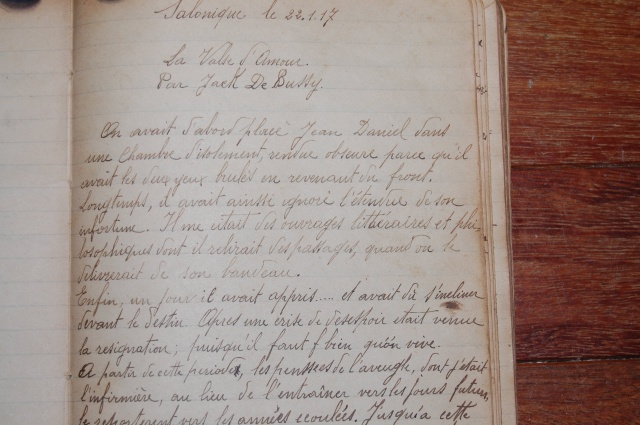 Salonique le 22.1.17
La Valse d'Amour.
Par Jack De Bussy.
On avait d'abord placé Jean Daniel dans
une Chambre d'isolement, rendue obscure parce qu'il
avait les deux yeux brulés en revenant du front.
Longtemps, il avait ainsi ignoré l'étendue de son
infortune. Il me citait des ouvrages littéraires et phi-
losophiques dont il relirait des passages, quand on le
délivrerait de son bandeau.
Enfin, un jour il avait appris.... et avait dû s'incliner
devant le destin. Après une crise de desespoir etait venue
la resignation; puisqu'il faut bien qu'on vive.
A partir de cette periode, les pensées de l'aveugle, dont j'étais
l'infirmière, au lieu de l'entraîner vers les jours futurs,
le reportèrent vers les années écoulées. Jusqu'a cette